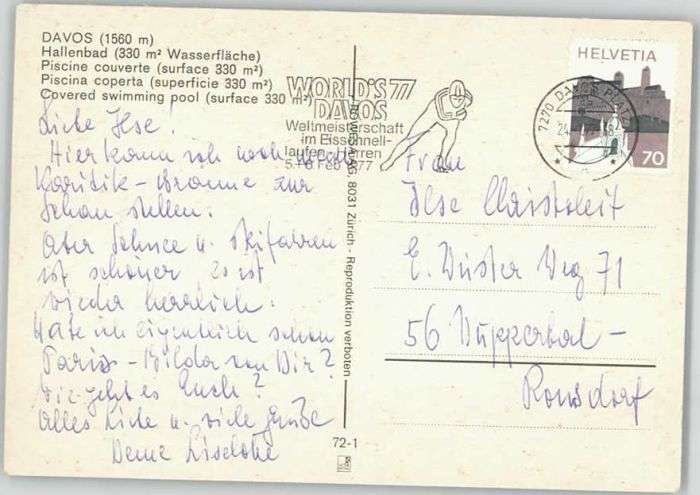 DAVOS (1560 m)
Hallenbad (330 m² Wasserfläche)
Piscine couverte (surface 330 m²)
Piscina coperta (superficie 330 m²)
Covered swimming pool (surface 330 m²)
Liebe Ilse!
Hier kann ich noch meine
Karibik-Bräune zur
Schau stellen.
Aber Schnee u. Skifahren
ist schöner. Es ist
wieder herrlich.
Habe ich eigentlich schon
Paris-Bilder von Dir?
Wie geht es Euch?
Alles Liebe u. viele Grüße
Deine Liselotte
WORLD'S 77
DAVOS
Weltmeisterschaft
im Eisschnell-
laufen-Herren
Feb 77
7270 DAVOS PLATZ
HELVETIA
70
8031 Zürich - Reproduktion verboten
72-1
Frau
Ilse Christoleit
E. Düster Weg 71
56 Wuppertal-
Ronsdorf